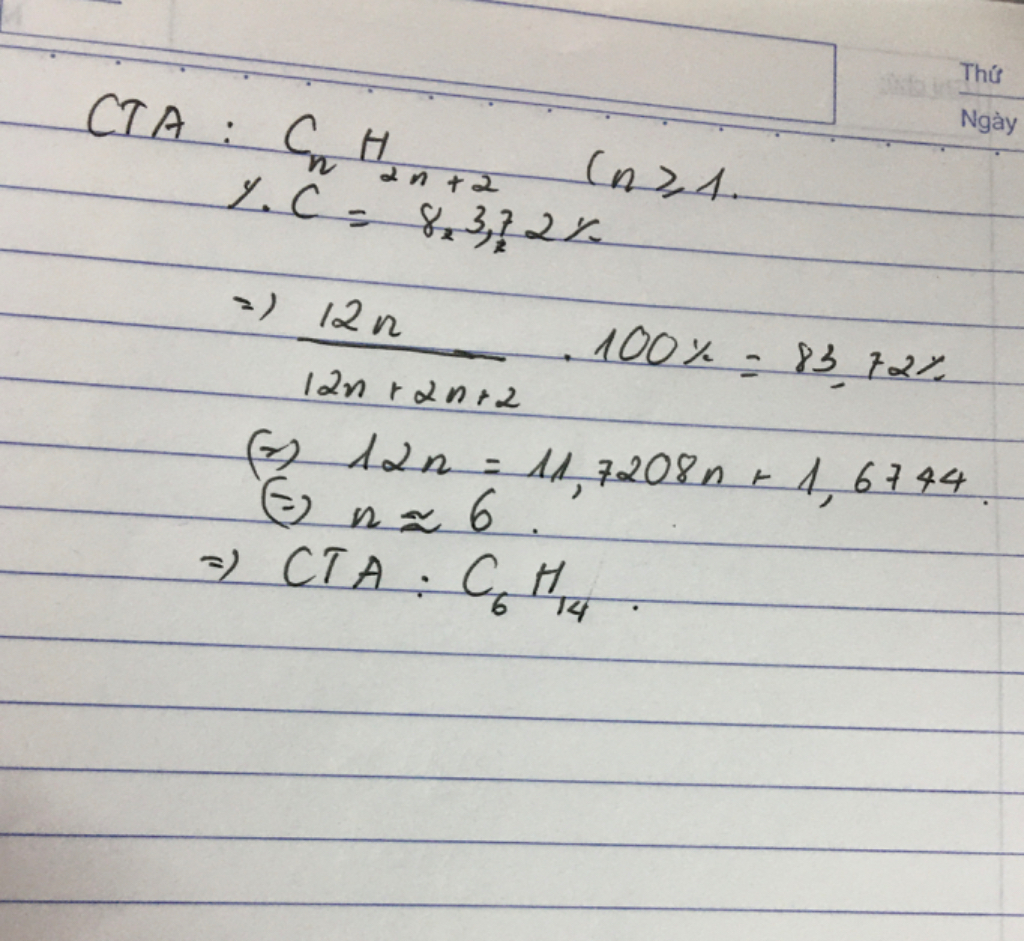 Thứ
Ngày
CTA : CnH2n+2 (n ≥ 1.
% C = 83,72%
=) 12n / 12n + 2n + 2 . 100% = 83,72%
(=) 12n = 11,7208n + 1,6744.
(=) n ≈ 6.
=) CTA : C6H14.